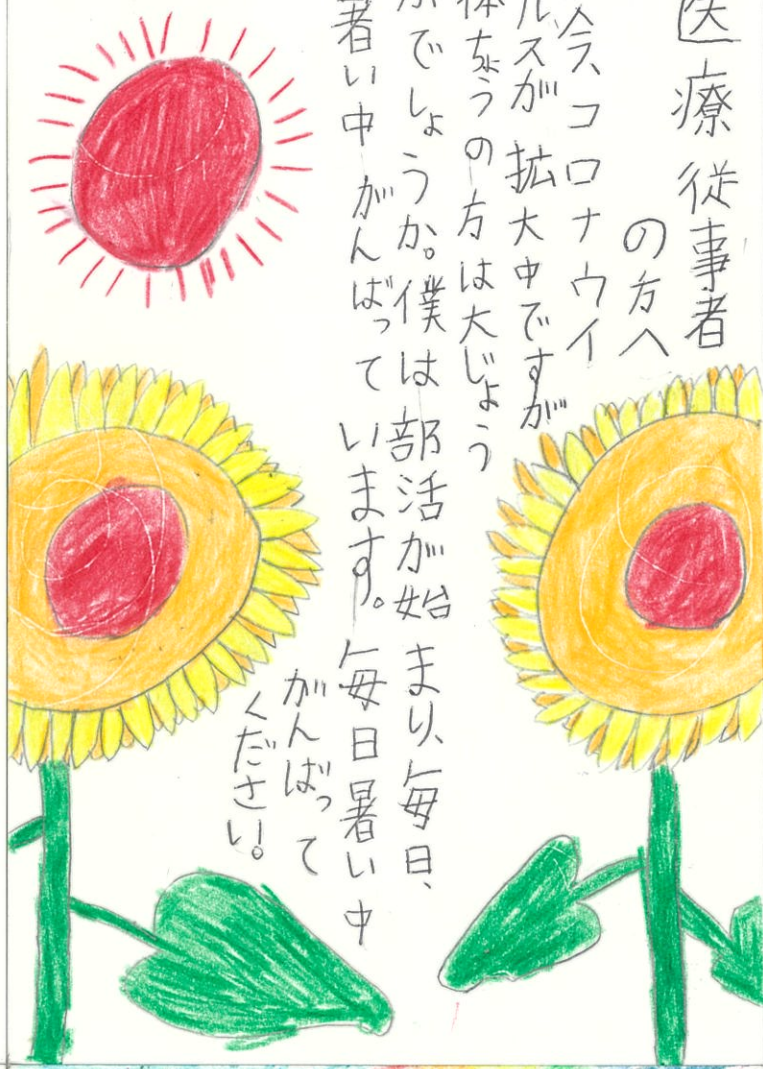 医療従事者
の方へ
今、コロナウイ
ルスが拡大中ですが
体ちょうの方は大じょう
でしょうか。僕は部活が始まり、毎日、
暑い中がんばっています。毎日暑い中
がんばって
ください。